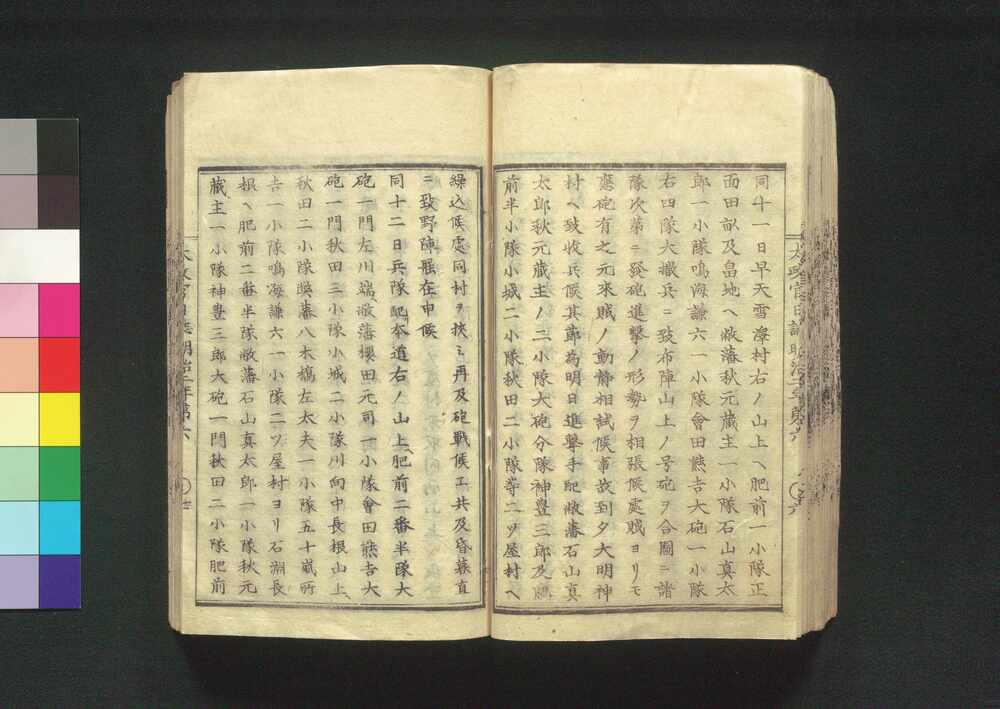 同十一日早天雪澤村右ノ山上ヘ肥前一小隊正
面田畝及畠地ヘ敝藩秋元蔵主一小隊石山真太
郎一小隊鳴海謙六一小隊會田熊吉大砲一小隊
右四隊大撒兵ニ致布陣山上ノ号砲ヲ合圖ニ諸
隊次第ニ發砲進撃ノ形勢ヲ相張候處賊ヨリモ
應砲有之元来賊ノ動静相試候事故到夕大明神
村ヘ致收兵候其節為明日進撃手配敝藩石山真
太郎秋元蔵主ノ二小隊大砲分隊神豊三郎及肥
前半小隊小城二小隊秋田二小隊等二ツ屋村ヘ
繰込候處同村ヲ挟ミ再及砲戰候ヱ共及昏暮直
ニ致野陣罷在申候
同十二日兵隊配本道右ノ山上肥前二番半隊大
砲一門左川端敝藩櫻田元司一小隊會田熊吉大
砲一門秋田三小隊小城二小隊川向中長根山上
秋田二小隊敝藩八木橋左太夫一小隊五十嵐所
吉一小隊鳴海謙六一小隊二ツ屋村ヨリ石淵長
根ヘ肥前二番半隊敝藩石山真太郎一小隊秋元
蔵主一小隊神豊三郎大砲一門秋田二小隊肥前
太政官日誌明治二年第六